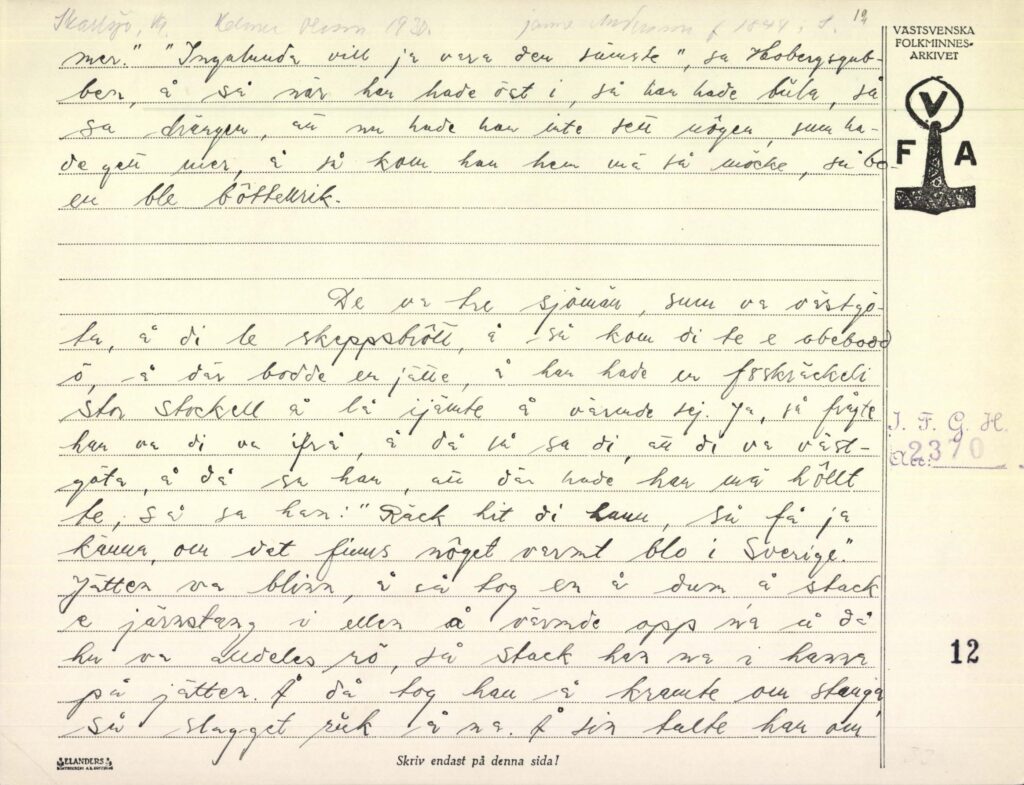 Helmer Olsson 1930.
12
VÄSTSVENSKA
FOLKMINNES-
ARKIVET
V
F A
mer." "Ingalunda vill ja vara den sämste", sa Hobergsgub-
ben, å så när han hade öst i, så han hade båla, så
sa drängen, att nu hade han inte sett nögen, sum ha-
de gett mer, å så kom han hem mä så möcke, så bo-
en ble böttenrik.
De va tre sjömän, sum va västgö-
ta, å di le skeppsbrött, å så kom di te e obebodd
ö, å där bodde en jätte, å han hade en föskräckeli
stor stockell å lå ijämte å värmde sej. Ja, så frågte
han va di va ifrå, å då så sa di, att di va väst-
göta, å då sa han, att där hade han mä höllt
te, så sa han: "Räck hit di hann, så få ja
känna, om det finns nöget varmt blo i Sverige".
Jätten va blinn, å så tog en å dum å stack
e järnstang i ellen å värmde opp na å då
hu va alldeles rö, så stack han na i hanna
på jätten. Å då tog han å kramte om stanga
så slagget rük å na. Å sin talte han om
I. F. G. H.
Acc: 2370
12
33
ELANDERS
Skriv endast på denna sida!